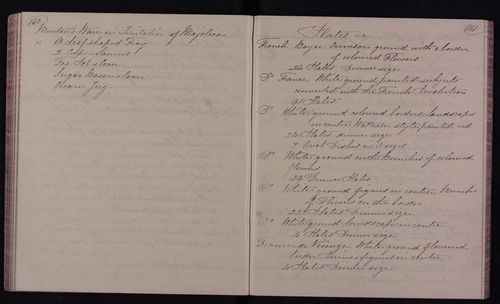 160
Mintons Ware in Imitation of Majolica
A Leaf shaped Tray
2 Cups Saucers
Tea Pot
Sugar Basin
Cream Jug
161
Plates &c
French. Crimson ground with a border
of coloured Flowers.
24 Plates Dinner size
Do France White ground painted subjects
connected with the French Revolution
91 Plates
Do White ground coloured borders landscapes
in centre Watteau style painted red
74 Plates dinner size
7 Oval Dishes
Do White ground with bunches of coloured
flowers
39 Dinner Plates
Do White ground figures in centre, bunches
of Flowers on the border
22 Plates Dinner size
Do White ground landscape in centre
4 Plates Dinner size
White ground flowered
border figures in centre
4 Plates Dinner size